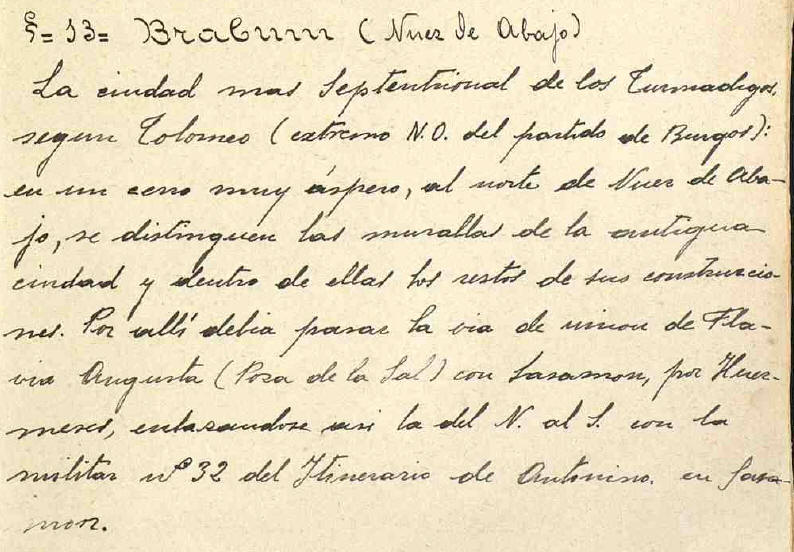 §= 13= Brabum (Nuez de Abajo)
La ciudad mas Septentrional de los Turmadigos,
segun Tolomeo (extremo N.O. del partido de Burgos):
en un cerro muy áspero, al norte de Nuez de Aba-
jo, se distinguen las murallas de la antigua
ciudad y dentro de ellas los restos de sus construccio-
nes. Por allí debia pasar la via de union de Fla-
via Augusta (Poza de la Sal) con Sasamon, por Huer-
meces, enlazandose asi la del N. al S. con la
militar nº 32 del Itinerario de Antonino. en Sasa-
mon.